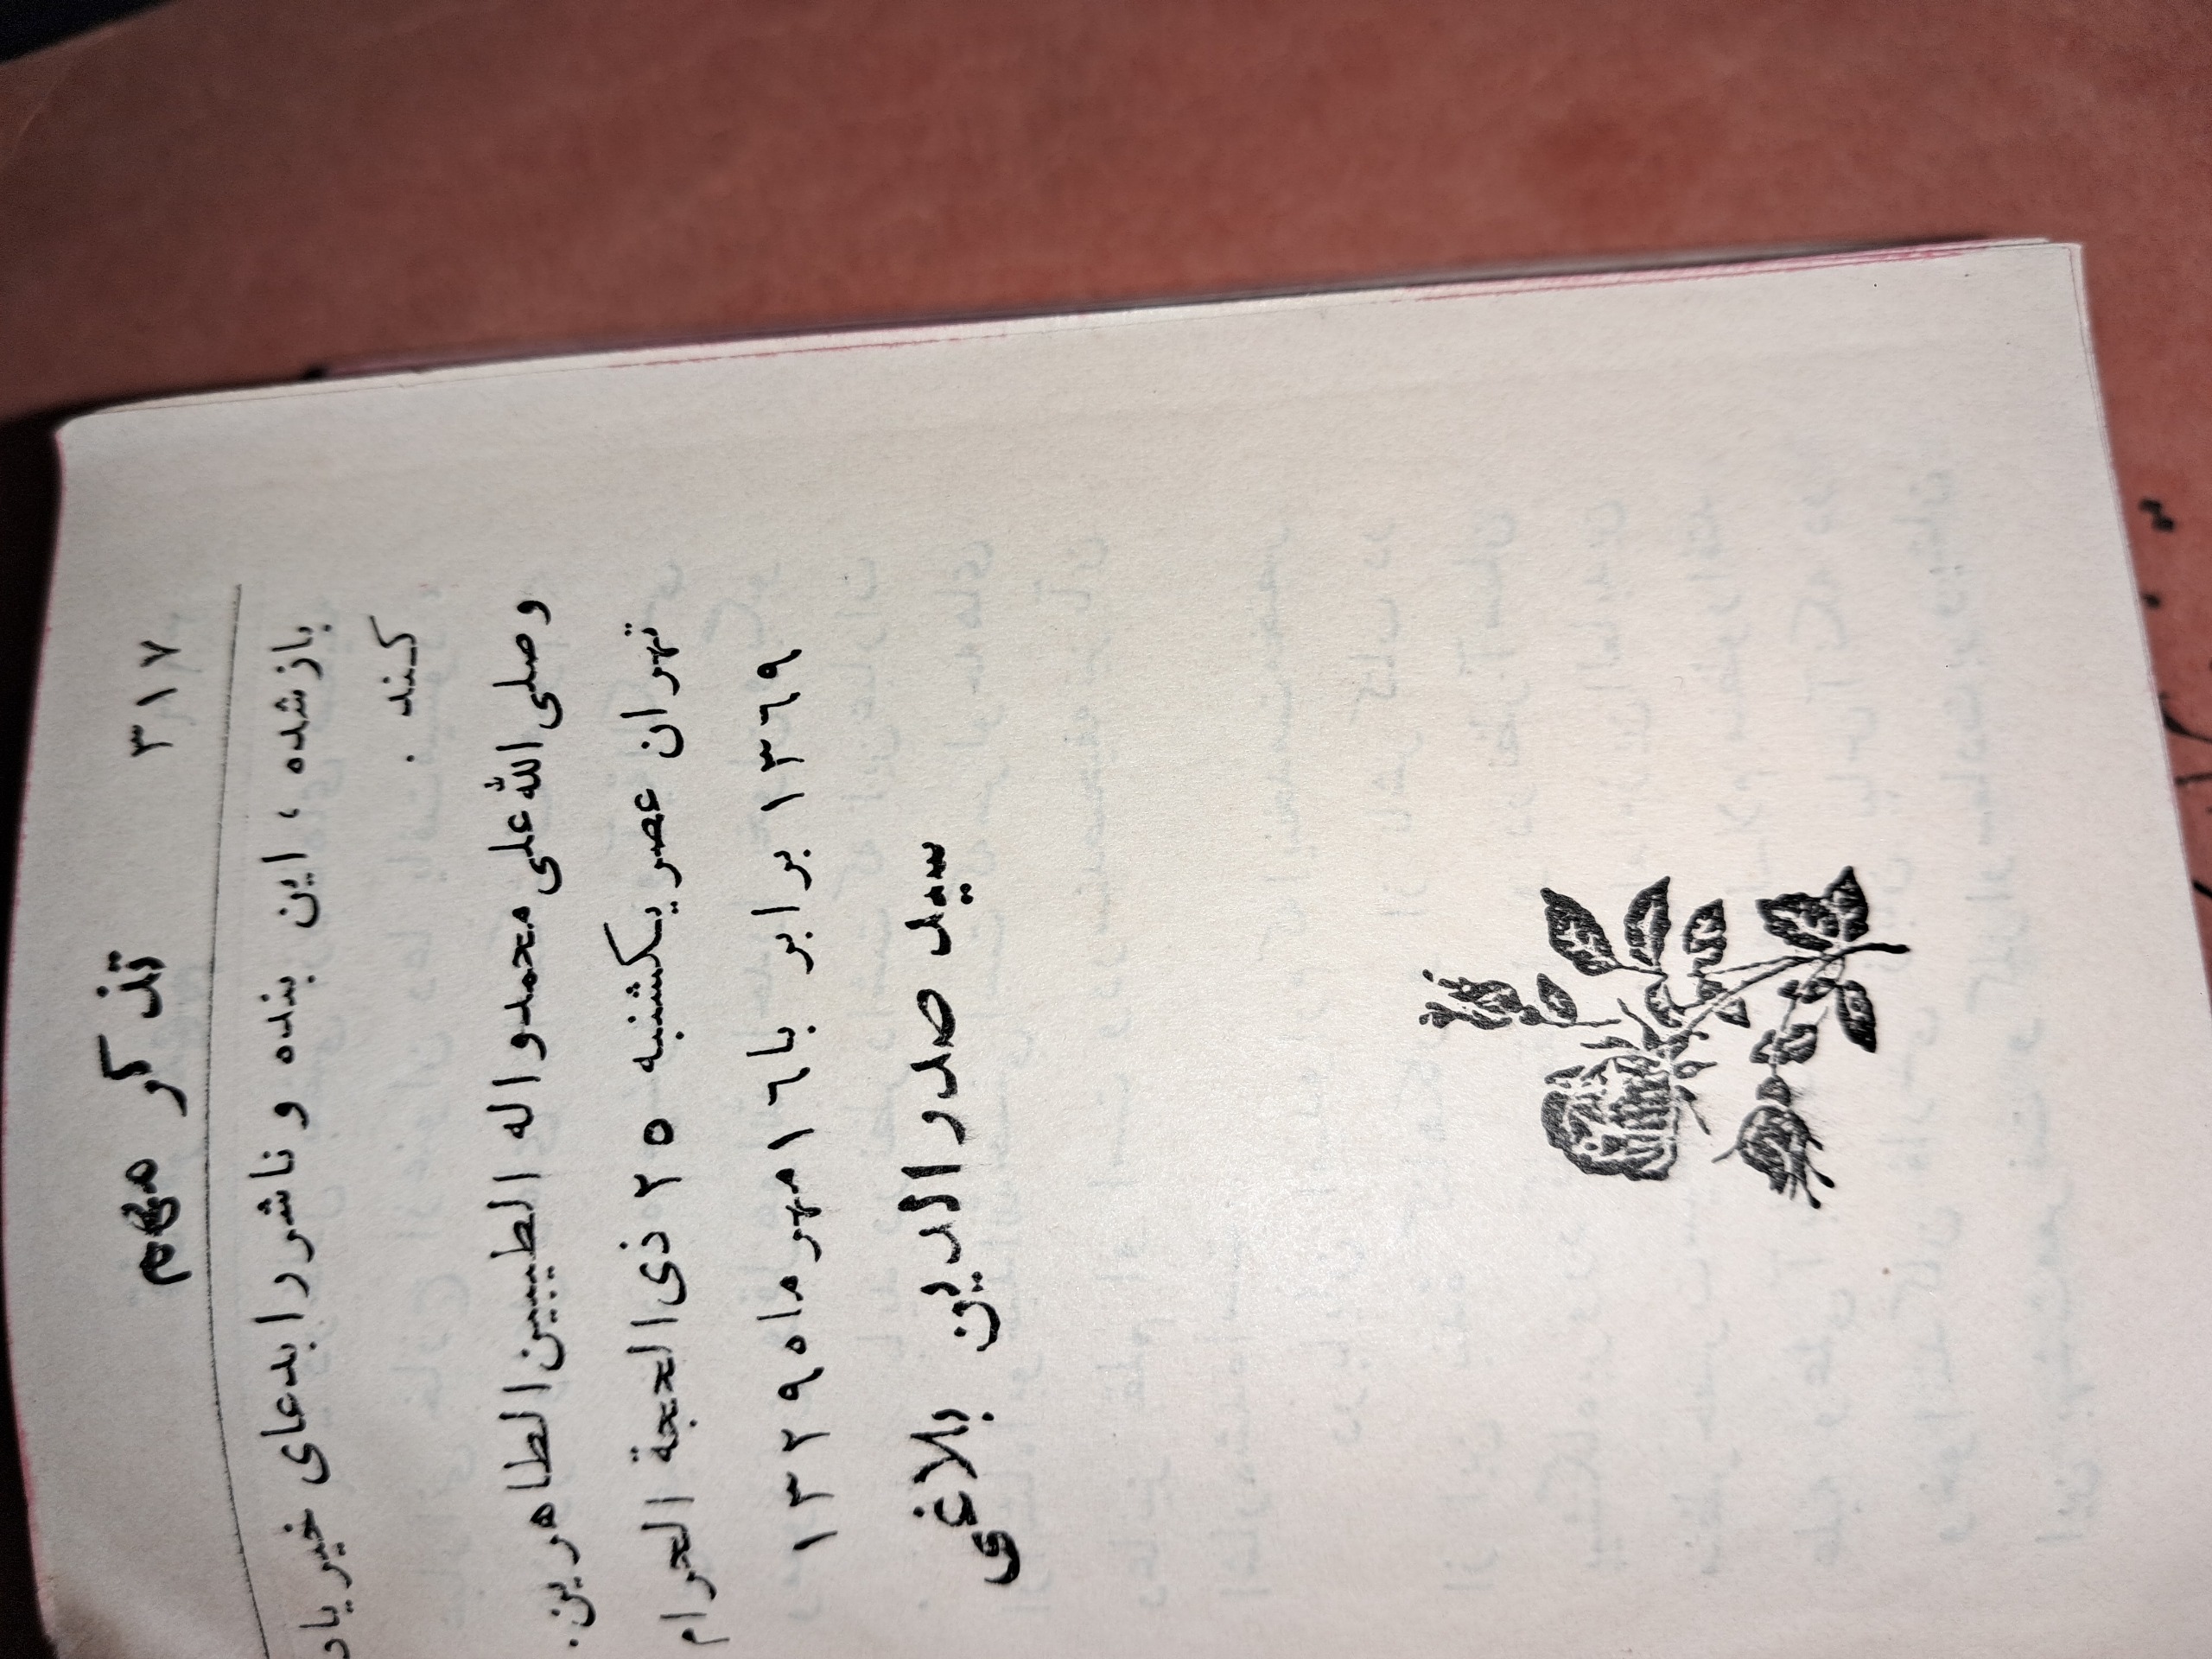 تذکر مهم
۳۱۷
بازشده ، این بنده و ناشر را بدعای خیر یاد
کند .
وصلی الله علی محمد و اله الطیبین الطاهرین.
تهران عصر یکشنبه ۲۵ ذی الحجة الحرام
۱۳۶۹ برابر با ۱۶ مهر ماه ۱۳۲۹
سید صدرالدین بلاغی